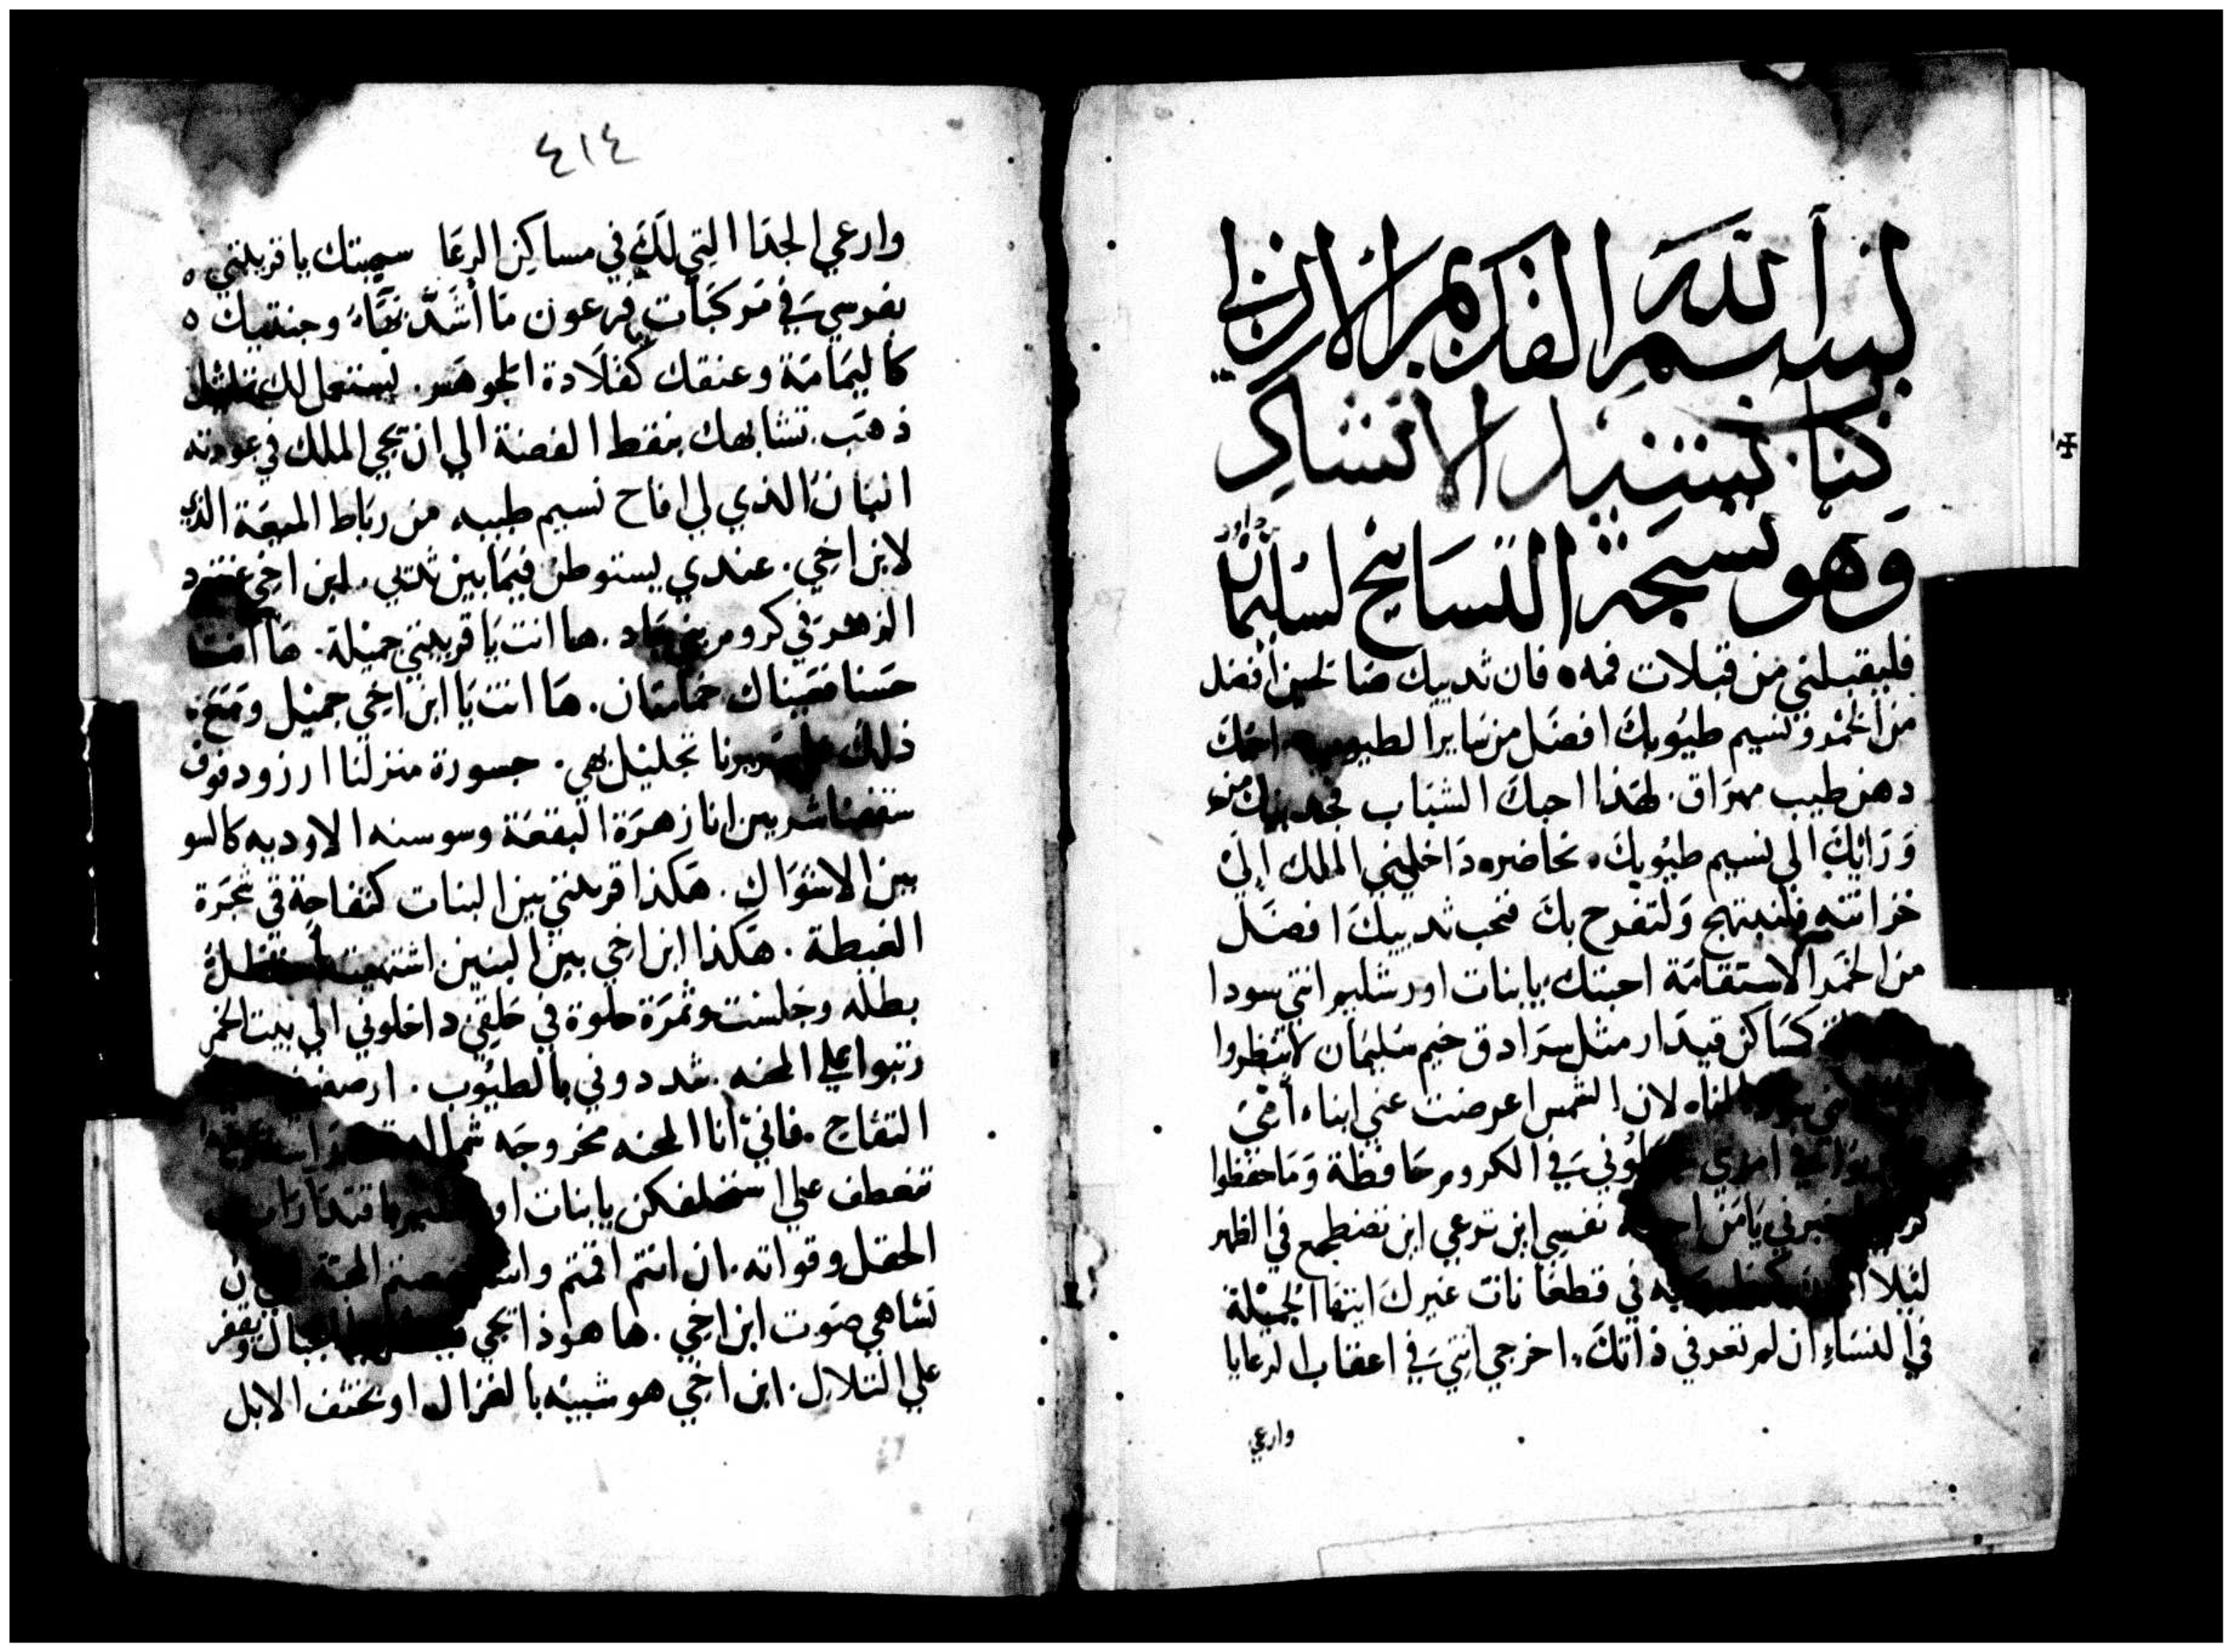 بسم الله القديم الازلي
كتاب نشيد الانشاد
وهو تسبحة التسابيح لسليمان
بن داود
فليقبلني من قبلات فمه فان ثدييك صالحين افضل
من الخمر ونسيم طيوبك افضل من ساير الطيوب اسمك
دهن طيب مهراق. لهذا احبك الشباب فجذبنك من
ورايك الي نسيم طيوبك. نحاضر داخلني الملك الي
خزانته فلنبتهج ولتفرح بك فنحب ثدييك افضل
من الخمر الاستقامة احبتك يا بنات اورشليم انني سودا
كمساكن قيدار مثل سرادق خيم سليمان لا تنظروا
لاني لان الشمس اعرضت عني ابناء أمي
في الكروم حافظة وما حفظوا
يا من نفسي اين ترعي اين تضطجع في الظهر
ليلا في قطعانات غيرك ايتها الجميلة
في النساء ان لم تعرفي ذاتك. اخرجي انتي في اعقاب الرعايا
وارعي
٤١٤
وارعي الجدا التي لك في مساكن الرعا سميتك يا قريبتي
بفرسي في مركبات فرعون ما أشد بهاء وجنتيك
كاليمامة وعنقك كقلادة الجوهر. نستعمل لك تماثيل
ذهب. تشابهك بنقط الفضة الي ان يجي الملك في عودته
البان الذي لي افاح نسيم طيبه من رباط الميعة الذي
لابن اخي. عندي يستوطن فيما بين ثديي. ابن اخي عنقود
الزهر في كروم جاد. ها انت يا قريبتي جميلة. ها انت
حسنا فعيناك حمامتان. ها انت يا ابن اخي جميل ومع
ذلك سريرنا تجليل بهي. جسورة منزلنا ارز ودفوف
سقفنا شربين انا زهرة البقعة وسوسنه الاوديه كالسو
بين الاشواك. هكذا قريبتي بين البنات كتفاحة في شجرة
الغيطة. هكذا ابن اخي بين البنين اشتهيت استظل
بظله وجلست وثمرة حلوة في حلقي داخلوني الي بيت الخمر
رتبوا علي المحبه. شددوني بالطيوب.
التفاح. فاني انا المحبه مجروحه شماله
تنعطف علي استحلفكن يا بنات
الحقل وقواته. ان انتم اقمتم المحبة
تشاهي صوت ابن اخي. ها هوذا يجي الجبال
علي التلال. ابن اخي هو شبيه بالغزال او بخشف الابل